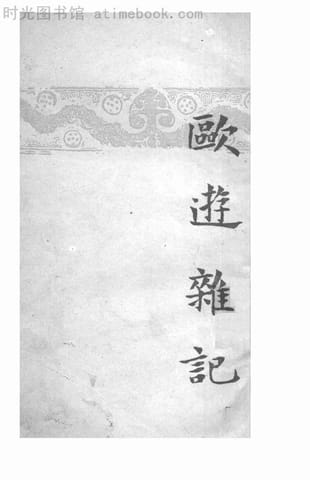 时光图书馆 - atimebook.com
歐遊雜記